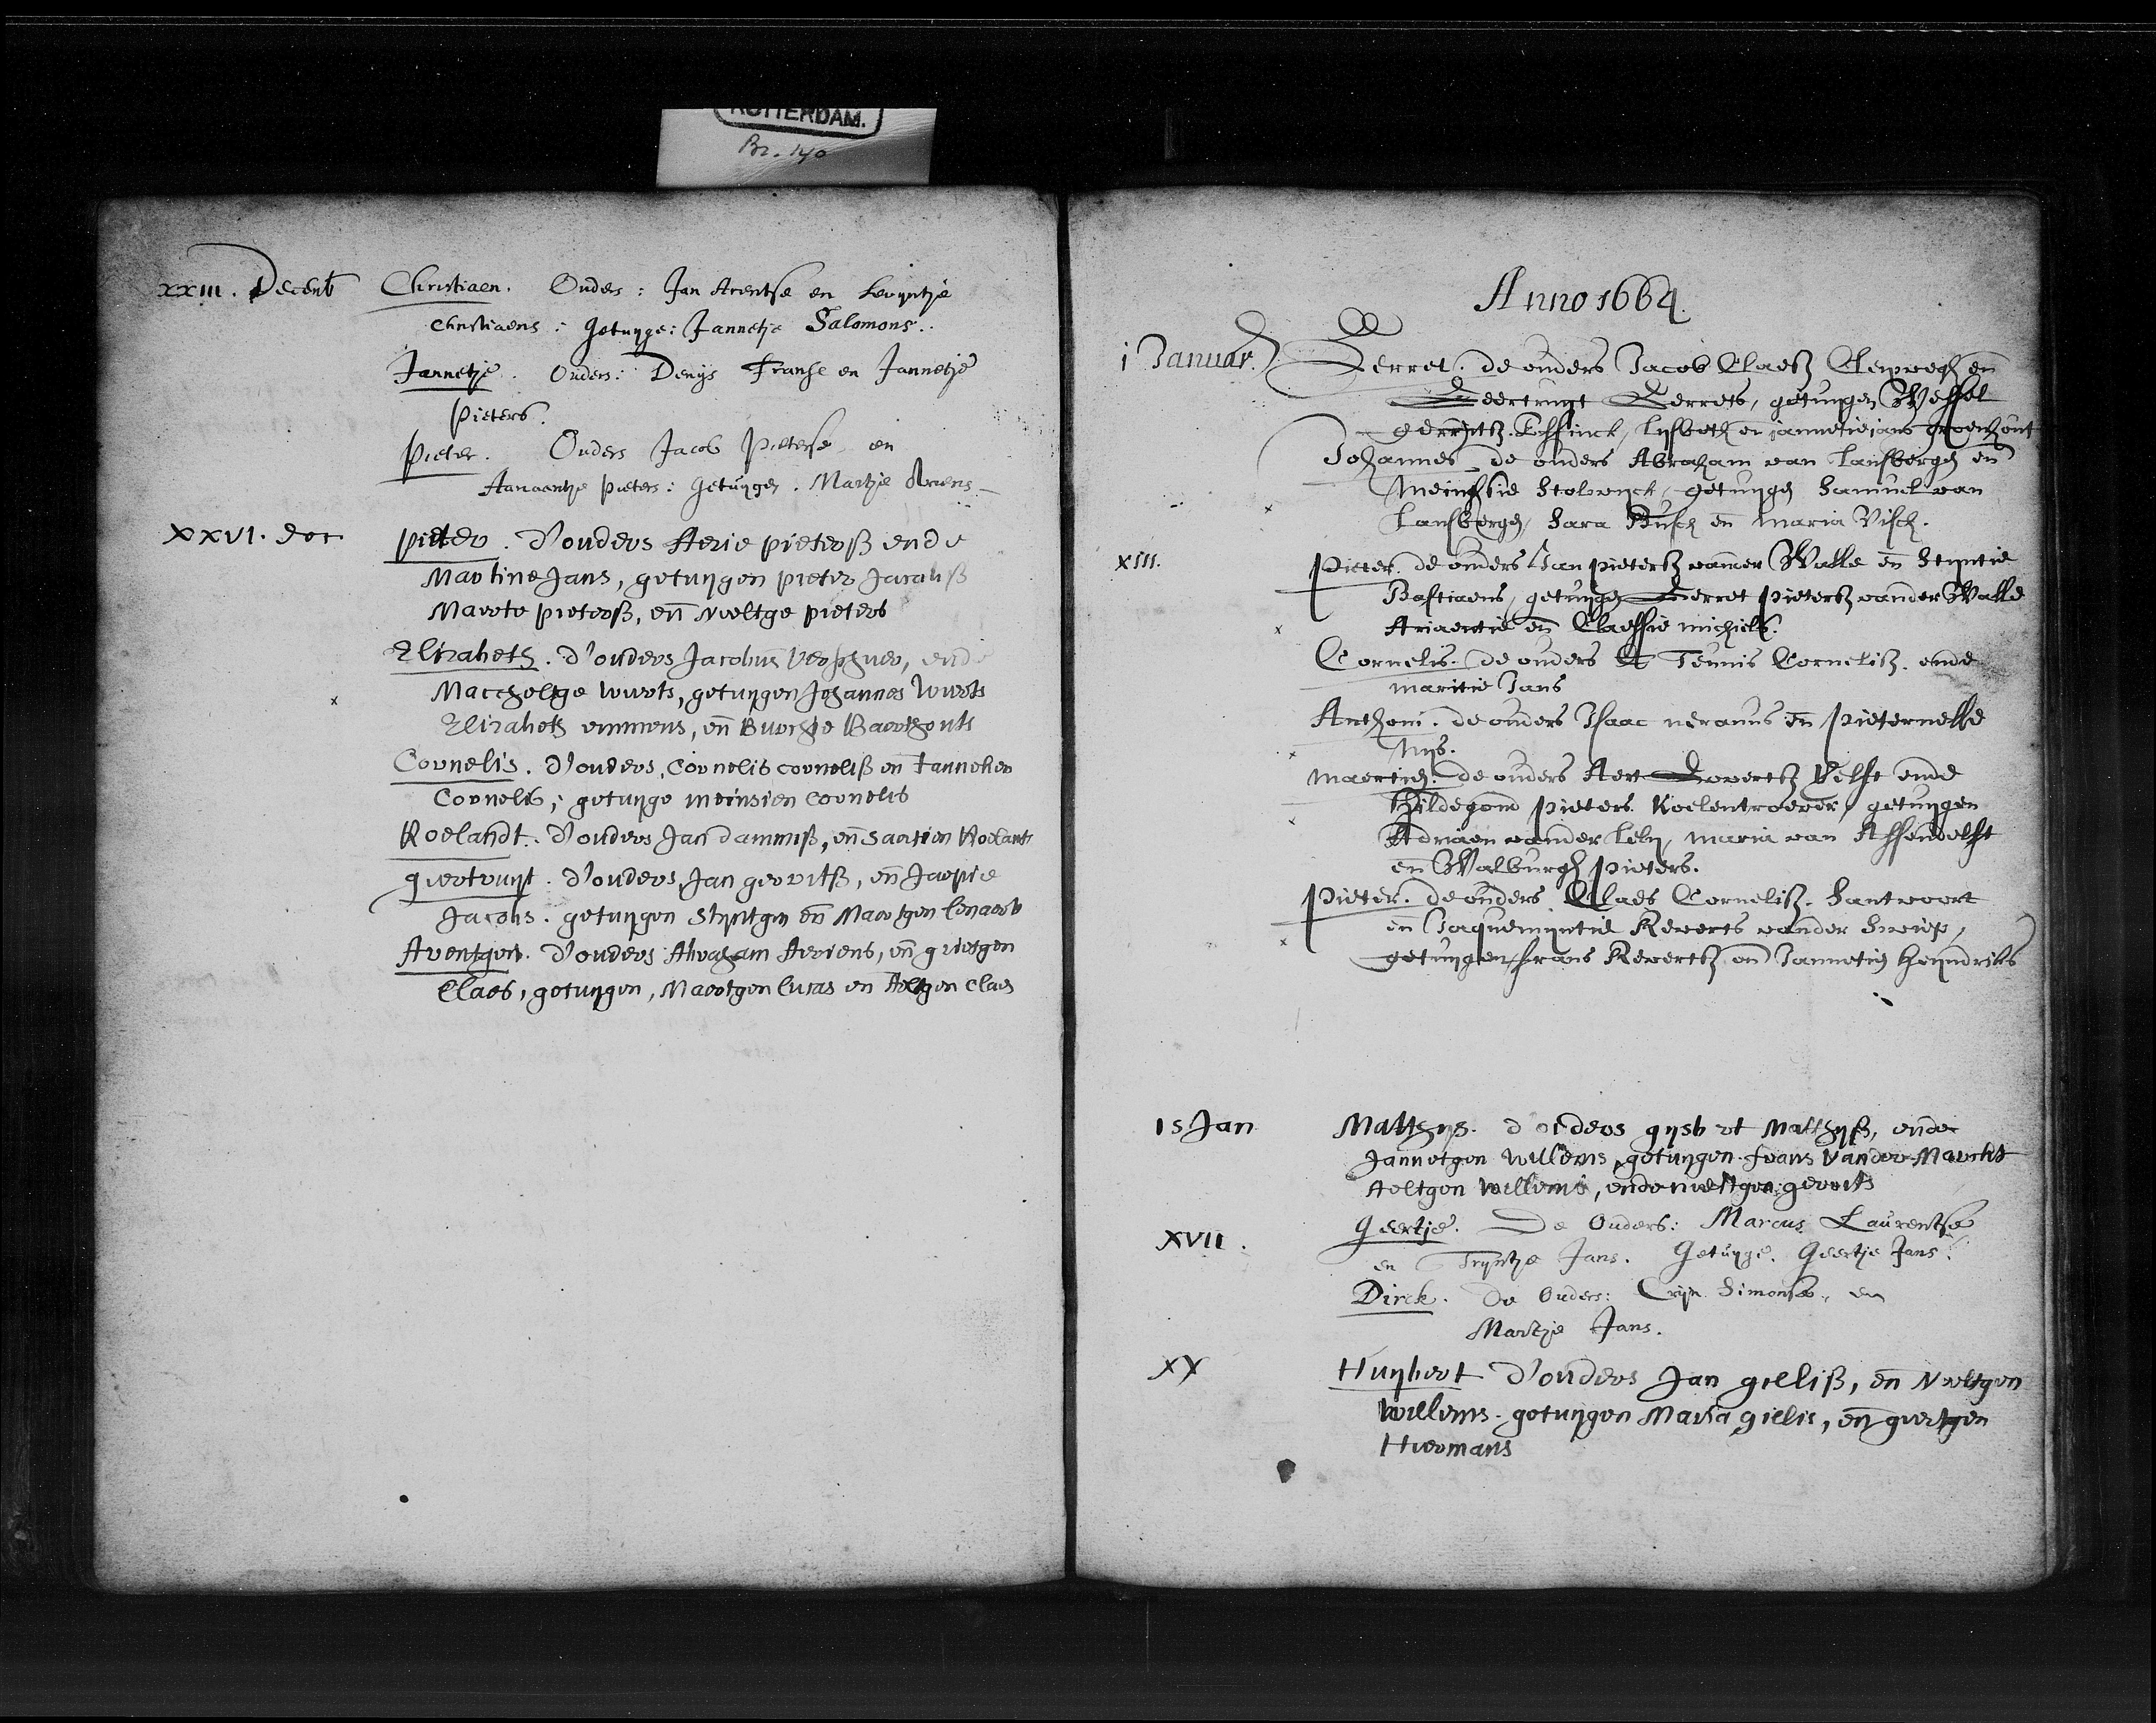 ROTTERDAM.
Br. 140
XXIII. Decemb Christiaen. Ouders: Jan Arentse en Levyntje
Christiaens: Getuyge: Jannetje Salomons.
Jannetje. Ouders: Denys Franse en Jannetje
Pieters.
Pieter. Ouders Jacob Pieterse en
Pieters: Getuygen. Martje Ariens
XXVI. dec pieter. d'ouders Aerie pieterß ende
Martine Jans, getuygen pieter Jacobß
Maerte pieterß, en Neeltge pieters
Elizabeth. d'ouders Jacobus ende
Maccheltge Wuerts, getuygen Johannes Wuerts
Elizabeth emmens, en
Cornelis. d'ouders, Cornelis corneliß en Janneken
Cornelis, getuyge meinsien Cornelis
Roelandt. d'ouders Jan dammiß, en Saertien Roelants
geertruyt. d'ouders, Jan gerritß, en Jaepie
Jacobs. getuygen Styntgen en Maertgen lenaerts
Arentgen. d'ouders Abraham Aeriens, en grietgen
Claes, getuygen, Maertgen lucas en Aeltgen Claes
Anno 1664.
1 Januar. Gerret. de ouders Jacob Claesz en
Geertruyt Gerrets, getuygen Wessel
gerritsz. lysbeth en jannetie jans groenhout
Johannes de ouders Abraham van Lansbergen en
Meinsie Stolwyck, getuygen Samuel van
Lansbergen, Sara Busch en Maria Visch.
XIII. Pieter. de ouders Jan pietersz vander Walle en Styntie
Bastiaens, getuygen Gerret pietersz vander Walle
Ariaentie en Claessie michiels.
Cornelis. de ouders Teunis Cornelisz. ende
maritie Jans
Anthoni. de ouders Isaac neranus en pieternelle
Nys.
maertien. de ouders Aert Govertsz Delft ende
Hildegond pieters Koelentroever, getuygen
Adriaen vander Lely, maria van Assendelft
en Walburgh pieters.
Pieter. de ouders Claes Cornelisz. Santvoort
en Jaquemyntie Reverts vander Swiep,
getuygen, frans Revertsz en Jannetie Heyndriks
15 Jan Matthys. d'ouders gysbert Matthyß, ende
Jannetgen Willems, getuygen. frans Vander Marckt
Aeltgen Willems, ende neeltgen gerrits
XVII. Geertje. De Ouders: Marcus Laurentse
en Tryntje Jans. Getuyge. Geertje Jans.
Dirck. De Ouders: Cryn Simonse, en
Martje Jans.
XX Huybert d'ouders Jan gelliß, en Neeltgen
Willems. getuygen Maria gillis, en geertgen
Hermans